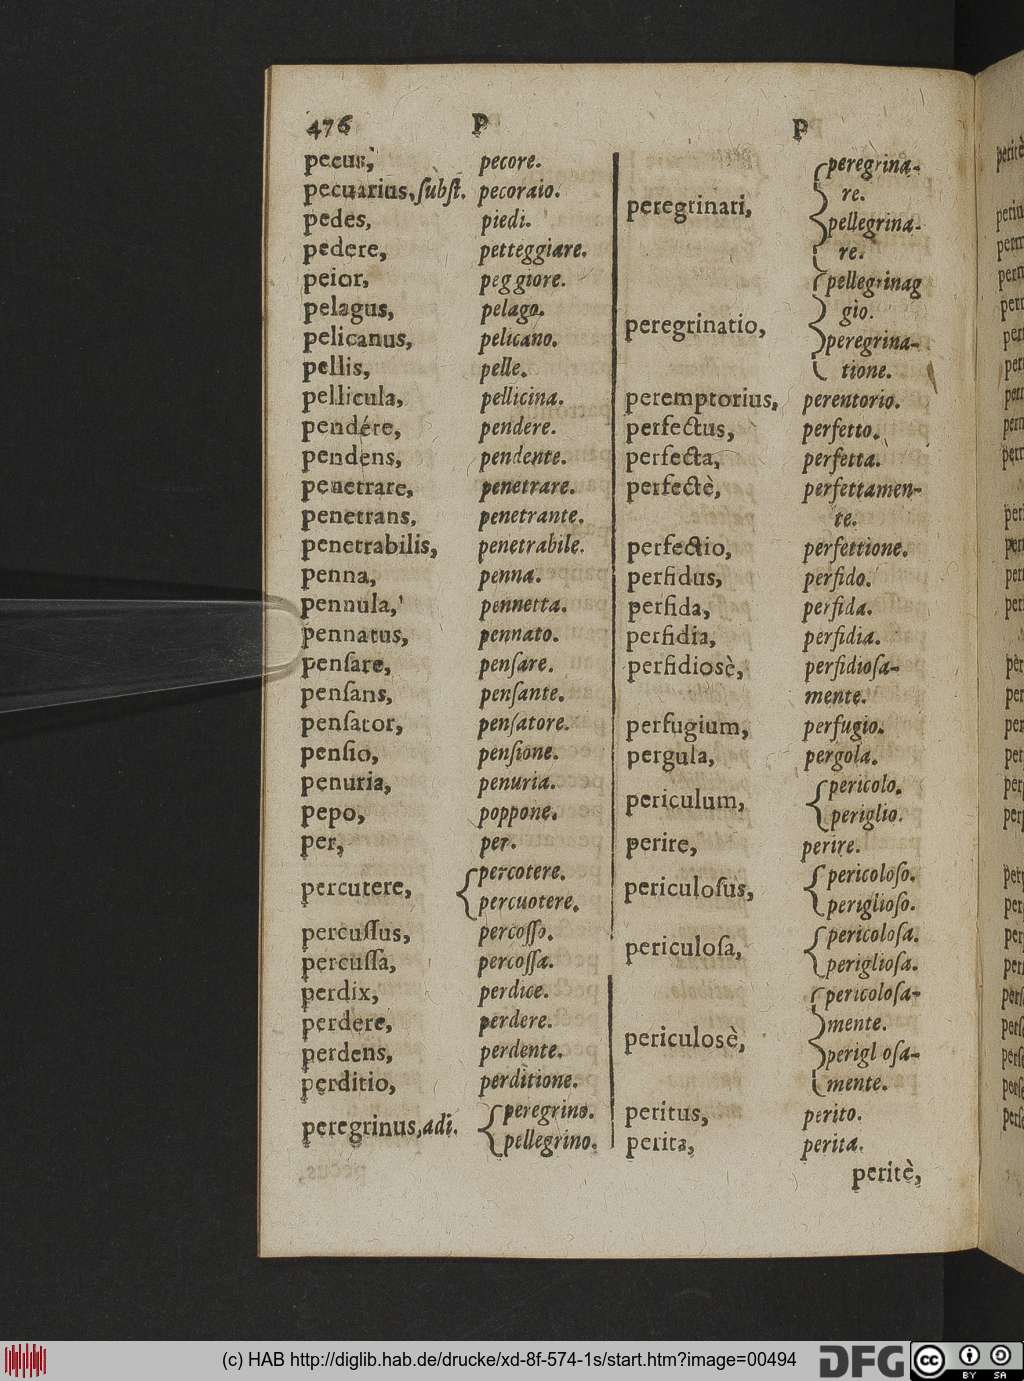 476 P P
pecus, pecore.
pecuarius, ſubſt. pecoraio.
pedes, piedi.
pedere, petteggiare.
peior, peggiore.
pelagus, pelago.
pelicanus, pelicano.
pellis, pelle.
pellicula, pellicina.
pendére, pendere.
pendens, pendente.
penetrare, penetrare.
penetrans, penetrante.
penetrabilis, penetrabile.
penna, penna.
pennula, pennetta.
pennatus, pennato.
penſare, penſare.
penſans, penſante.
penſator, penſatore.
penſio, penſione.
penuria, penuria.
pepo, poppone.
per, per.
percutere, { percotere.
percuotere.
percuſſus, percoſſo.
percuſſa, percoſſa.
perdix, perdice.
perdere, perdere.
perdens, perdente.
perditio, perditione.
peregrinus, adi. { peregrino.
pellegrino.
peregrinari, { peregrina-
re.
pellegrina-
re.
peregrinatio, { pellegrinag
gio.
peregrina-
tione.
peremptorius, perentorio.
perfectus, perfetto.
perfecta, perfetta.
perfectè, perfettamen-
te.
perfectio, perfettione.
perfidus, perfido.
perfida, perfida.
perfidia, perfidia.
perfidiosè, perfidioſa-
mente.
perfugium, perfugio.
pergula, pergola.
periculum, { pericolo.
periglio.
perire, perire.
periculoſus, { pericoloſo.
periglioſo.
periculoſa, { pericoloſa.
periglioſa.
periculosè, { pericoloſa-
mente.
perigl oſa-
mente.
peritus, perito.
perita, perita.
peritè,
(c) HAB http://diglib.hab.de/drucke/xd-8f-574-1s/start.htm?image=00494
DFG
cc BY SA